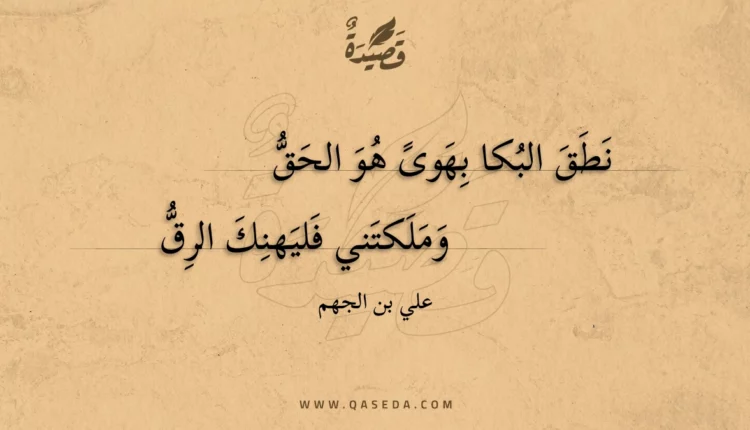 قَصِيْدَةٌ
نَطَقَ البُكا بِهَوىً هُوَ الحَقُّ
وَمَلَكتَني فَليَهنِكَ الرِقُّ
علي بن الجهم
WWW.QASEDA.COM